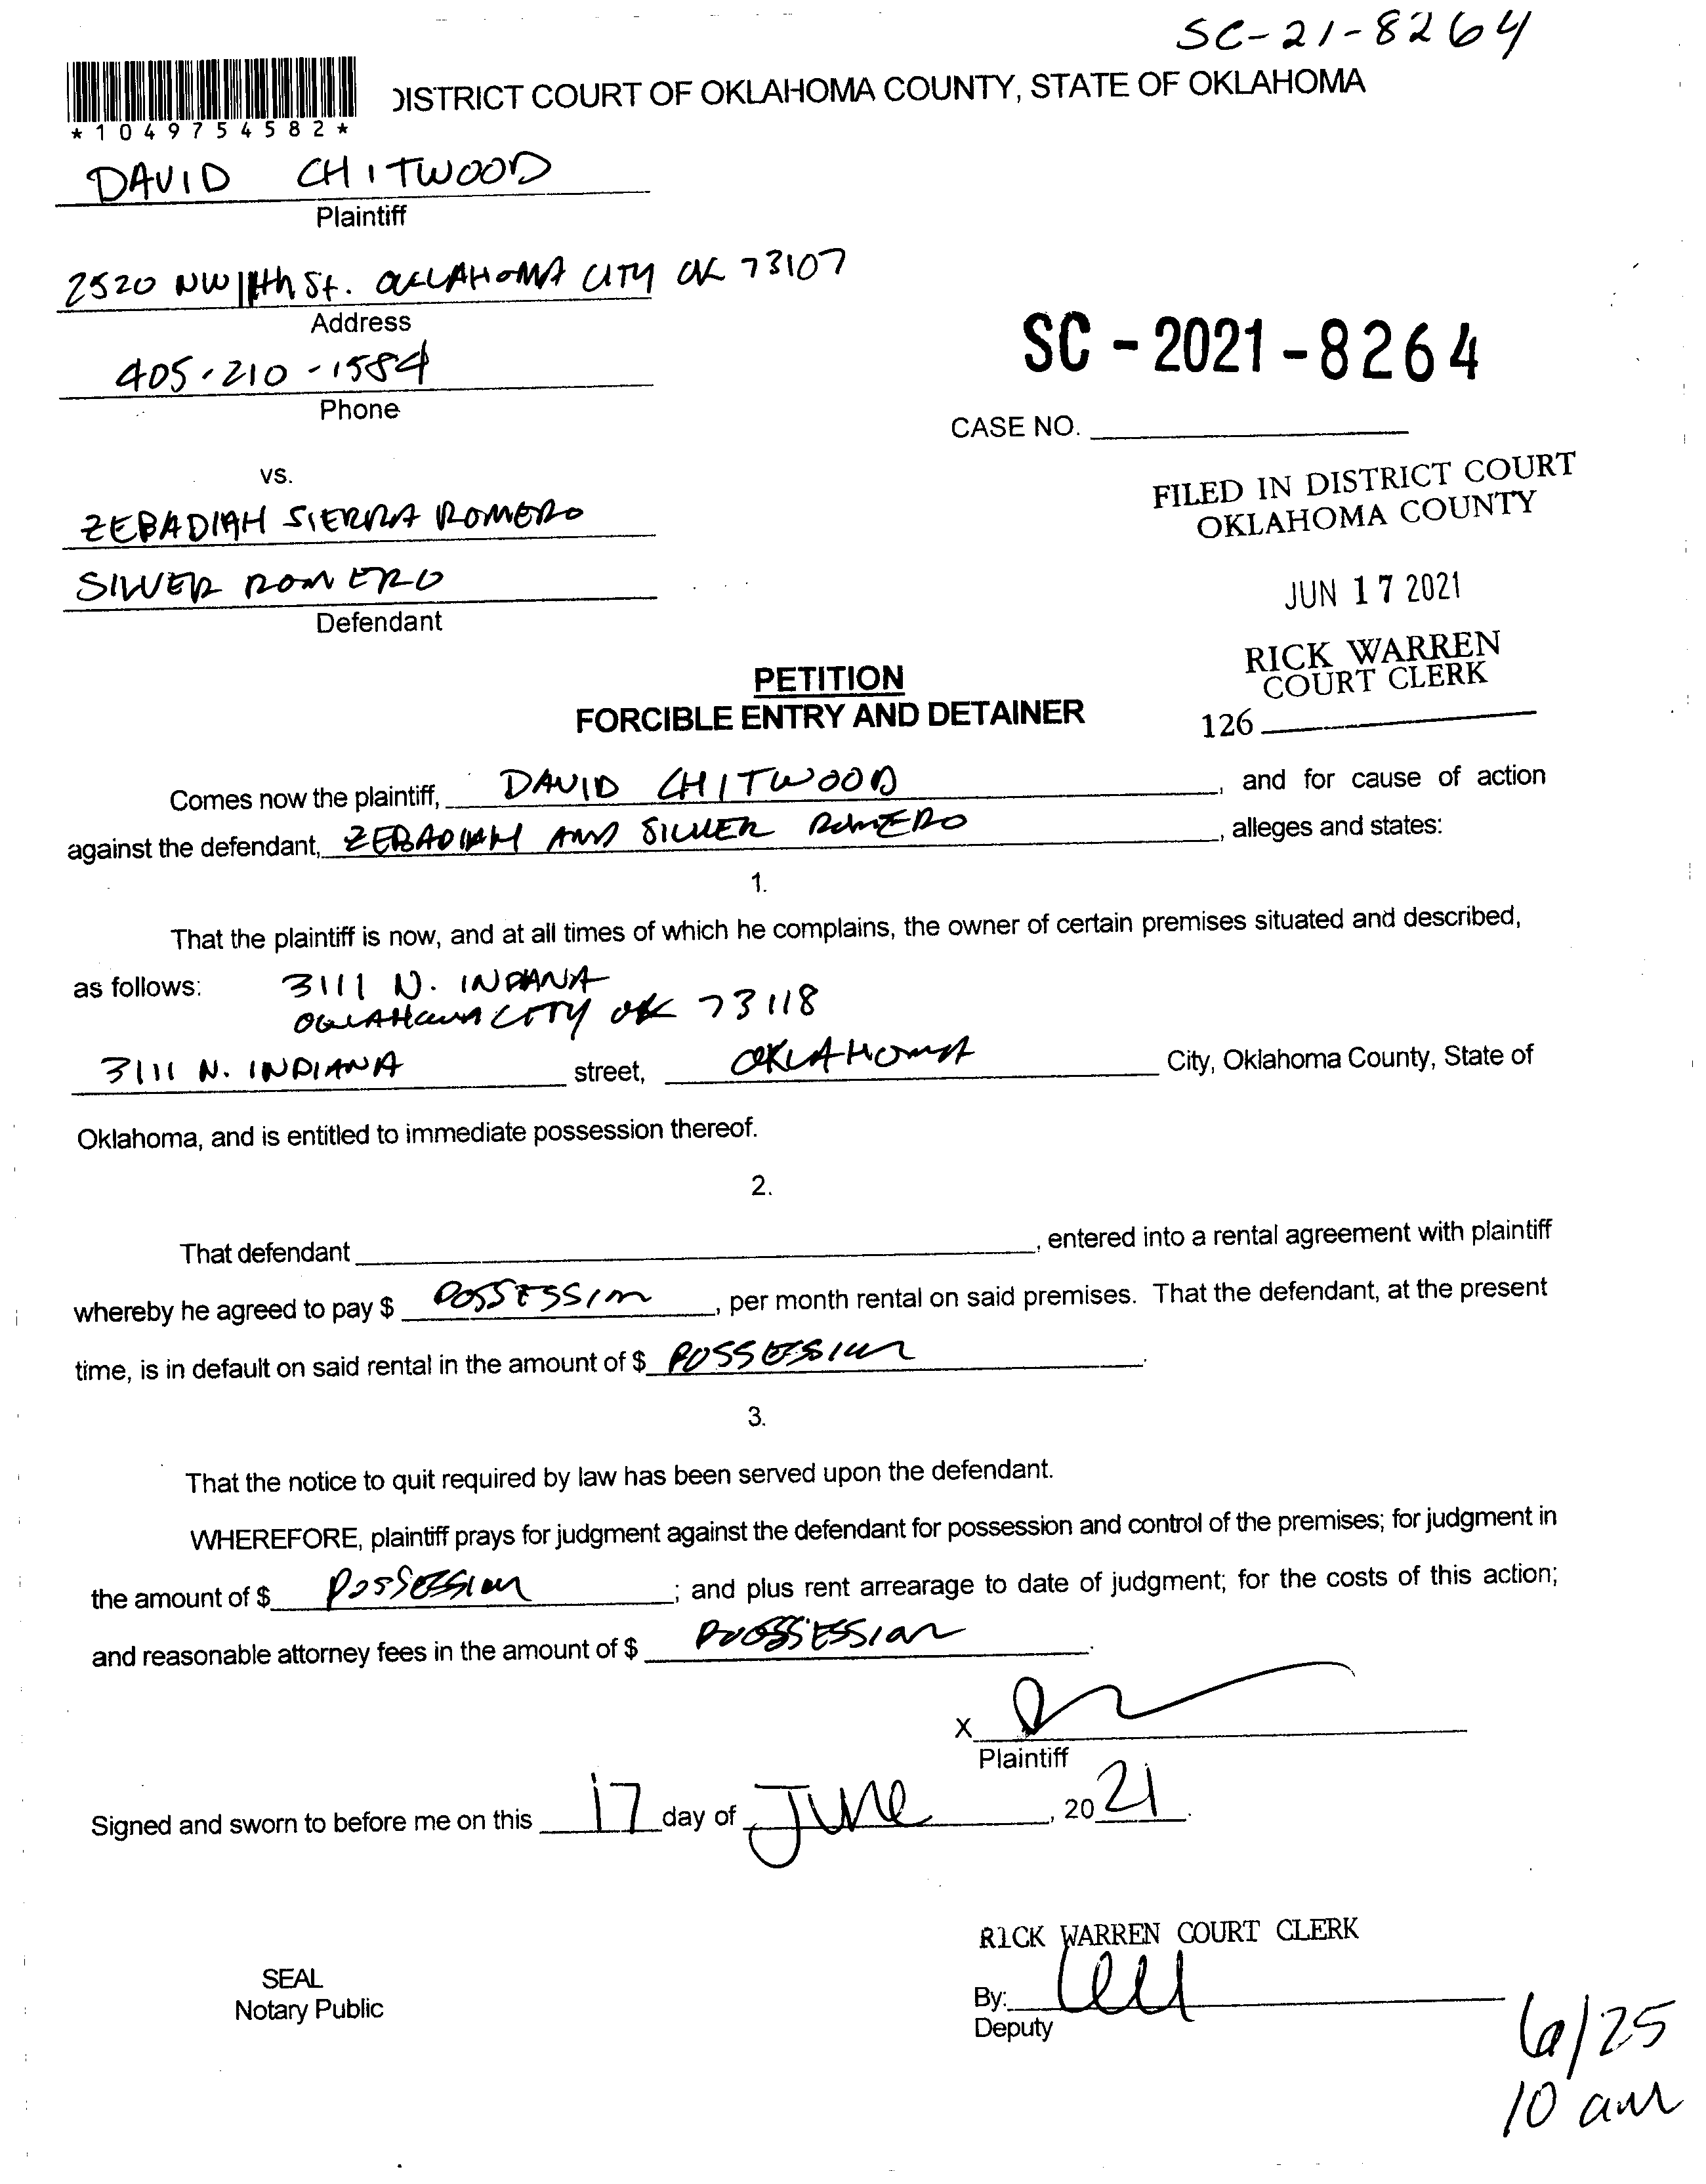 SC-21-8264
DISTRICT COURT OF OKLAHOMA COUNTY, STATE OF OKLAHOMA
*1049754582*
DAVID CHITWOOD
Plaintiff
2520 NW 11th St. OKLAHOMA CITY OK 73107
Address
405-210-1584
Phone
SC-2021-8264
CASE NO.
vs.
FILED IN DISTRICT COURT
OKLAHOMA COUNTY
ZEBADIAH SIERRA ROMERO
SILVER ROMERO
Defendant
JUN 17 2021
RICK WARREN
COURT CLERK
126
PETITION
FORCIBLE ENTRY AND DETAINER
Comes now the plaintiff, DAVID CHITWOOD, and for cause of action
against the defendant, ZEBADIAH AND SILVER ROMERO, alleges and states:
1.
That the plaintiff is now, and at all times of which he complains, the owner of certain premises situated and described,
as follows: 3111 N. INDIANA
OKLAHOMA CITY OK 73118
3111 N. INDIANA street, OKLAHOMA City, Oklahoma County, State of
Oklahoma, and is entitled to immediate possession thereof.
2.
That defendant , entered into a rental agreement with plaintiff
whereby he agreed to pay $ POSSESSION, per month rental on said premises. That the defendant, at the present
time, is in default on said rental in the amount of $ POSSESSION.
3.
That the notice to quit required by law has been served upon the defendant.
WHEREFORE, plaintiff prays for judgment against the defendant for possession and control of the premises; for judgment in
the amount of $ POSSESSION; and plus rent arrearage to date of judgment; for the costs of this action;
and reasonable attorney fees in the amount of $ POSSESSION.
X
Plaintiff
Signed and sworn to before me on this 17 day of June, 2021.
RICK WARREN COURT CLERK
SEAL
Notary Public
By:
Deputy
6/25
10 am